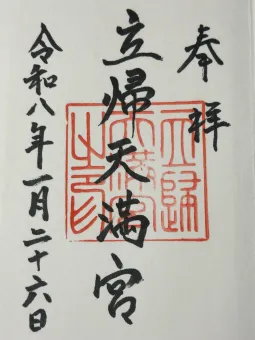 奉拝
立帰天満宮
令和八年一月二十六日